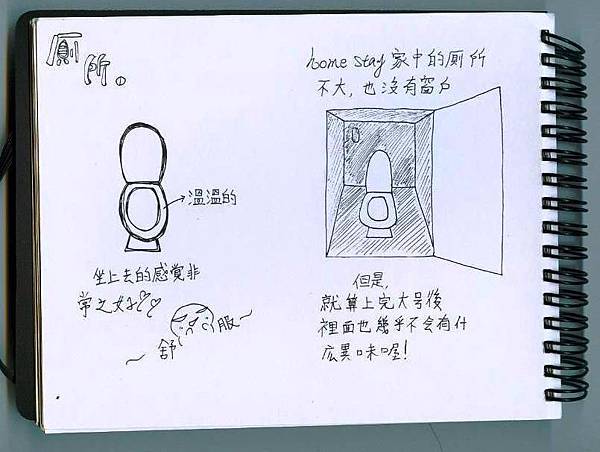 廁所①
溫溫的
坐上去的感覺非
常之好♡♡
~舒服~
home stay 家中的廁所
不大,也沒有窗戶
但是,
就算上完大号後
裡面也幾乎不会有什
広異味喔!